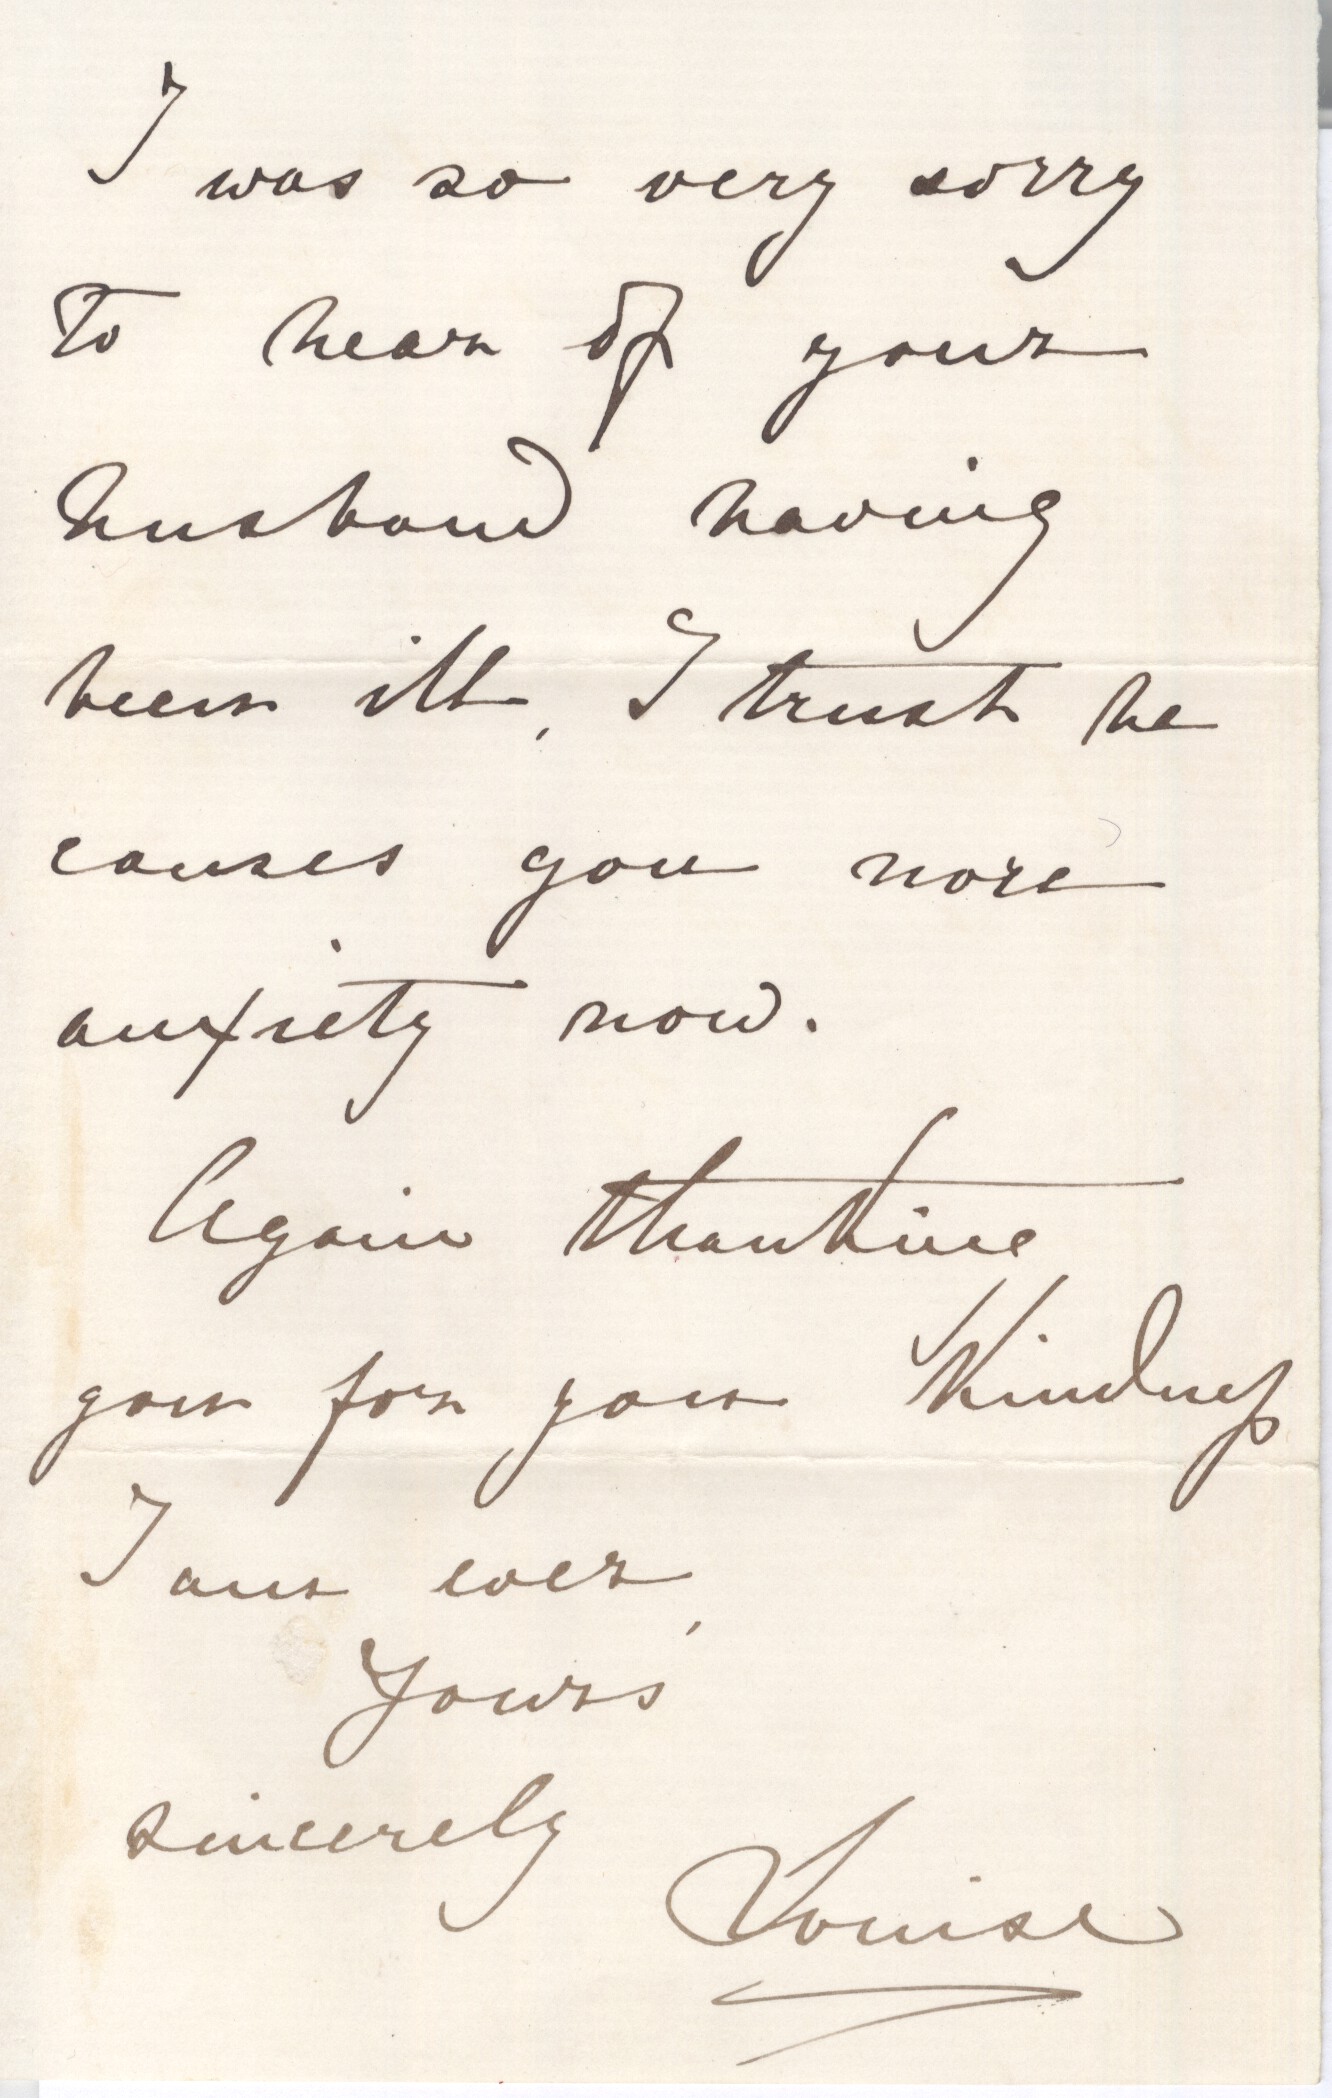 I was so very sorry
to hear of your
husband having
been ill, I trust he
causes you nore
anxiety now.
Again thanking
you for your Kindness
I am ever,
Yours
sincerely
Louise